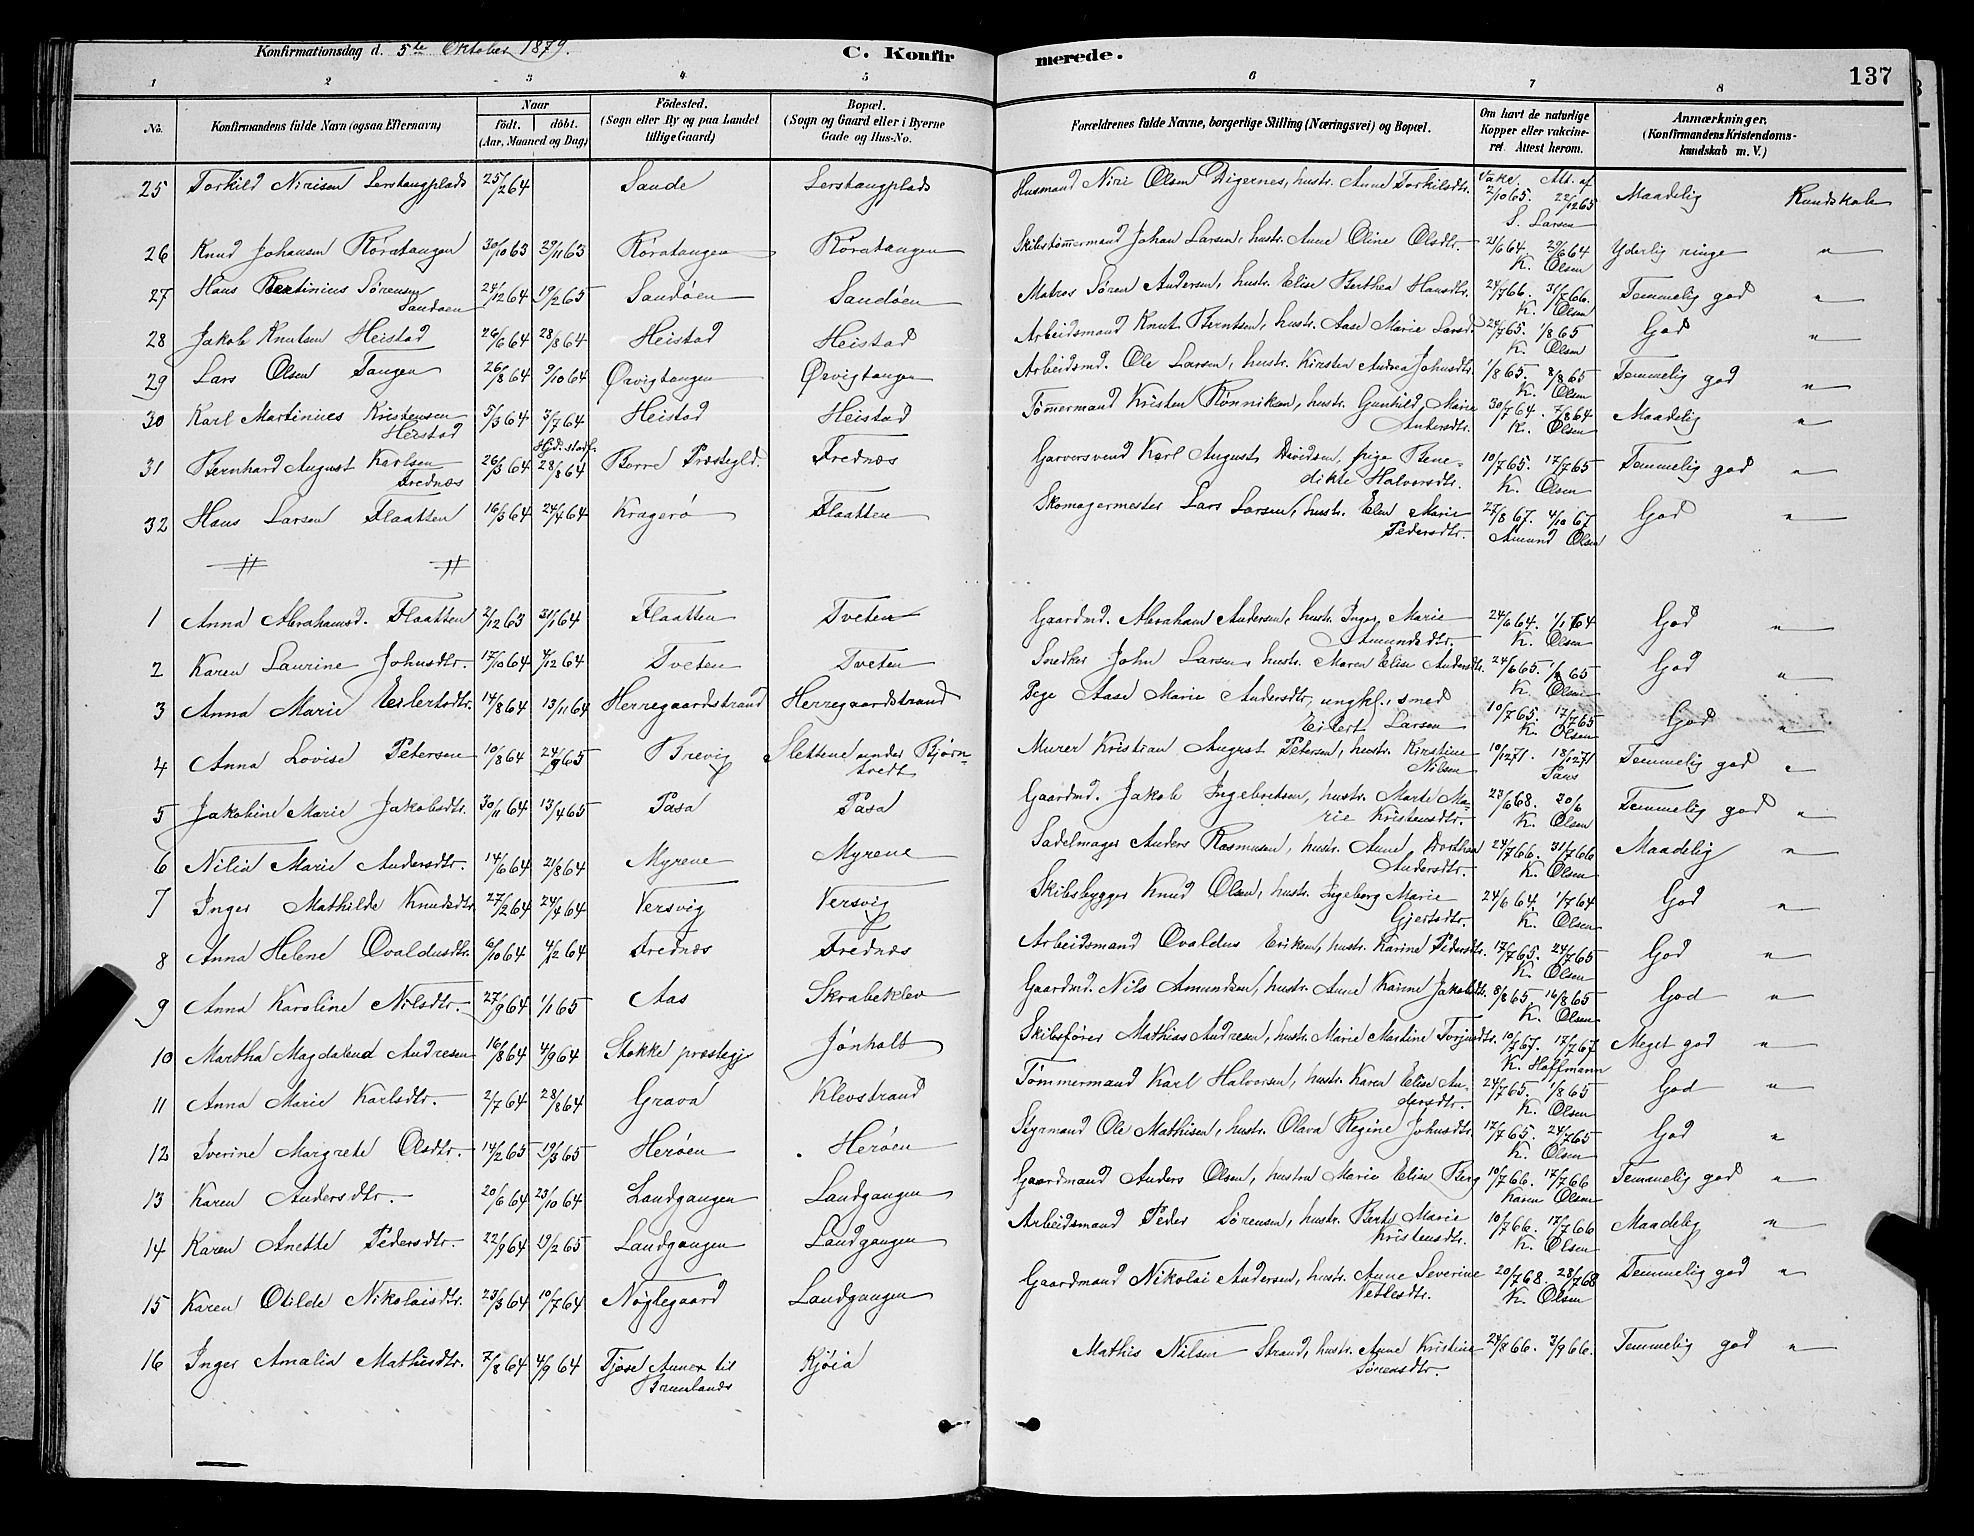 Konfirmationsdag d. 5te Oktober 1879.
C. Konfirmerede.
137
1 2 3 4 5 6 7 8
No. | Konfirmandens fulde Navn (ogsaa Efternavn) | Naar født. døbt. (Aar, Maaned og Dag) | Fødested. (Sogn eller By og paa Landet tillige Gaard) | Bopæl. (Sogn og Gaard eller i Byerne Gade og Hus-No. | Forældrenes fulde Navne, borgerlige Stilling (Næringsvei) og Bopæl. | Om havt de naturlige Kopper eller vakcineret. Attest herom. | Anmærkninger. (Konfirmandens Kristendomskundskab m. V.)
25 Torkild Nirisen Lerstangplads 25/2 64 Sande Lerstangplads Husmand Niri Olsen Digernes, hustr. Anne Torkilsdtr. Vakc. 2/10 65. Att. af 22/12 65 S. Larsen Maadelig Kundskab
26 Knud Johansen Røratangen 30/10 63 29/11 63 Røratangen Røratangen Skibstømmermand Johan Larsen, hustr. Anne Oline Olsdtr. 21/6 64. 29/6 64 K. Olsen Yderlig ringe "
27 Hans Bertinius Sørensen Sandøen 24/12 64 19/2 65 Sandøen Sandøen Matros Søren Andersen, hustr. Elise Berthea Hansdtr. 24/7 66. 31/7 66. K. Olsen Temmelig god "
28 Jakob Knutsen Heistad 26/6 64 28/8 64 Heistad Heistad Arbeidsmand Knut Berntsen, hustr. Aase Marie Larsd. 24/7 65. 1/8 65 K. Olsen God "
29 Lars Olsen Tangen 26/8 64 9/10 64 Ørvigtangen Ørvigtangen Arbeidsmd. Ole Larsen, hustr. Kirsten Andrea Johnsdtr. 1/8 65. 8/8 65 K. Olsen Temmelig god "
30 Karl Martinius Kristensen Heistad 5/3 64 3/7 64 Heistad Heistad Tømmermand Kristen Rønniksen, hustr. Gunhild Marie Andersdtr. 30/7 64. 7/8 64 K. Olsen Maadelig "
31 Bernhard August Karlsen Frednæs 26/3 64 Hjd. stadf. 28/8 64 Borre Præstegld. Frednæs Garversvend Karl August Davidsen, pige Benedikte Halvorsdtr. 10/7 65. 17/7 65 K. Olsen Temmelig god "
32 Hans Larsen Flaatten 16/3 64 24/4 64 Kragerø Flaatten Skomagermester Lars Larsen, hustr. Elen Marie Pedersdtr. 27/8 67. 4/10 67 Amund Olsen God "
1 Anna Abrahamsd. Flaatten 2/12 63 31/1 64 Flaatten Tveten Gaardmd. Abraham Andersen, hustr. Inger Marie Amundsdtr. 24/6 64. 1/7 64 K. Olsen God "
2 Karen Laurine Johnsdtr. 17/10 64 4/12 64 Tveten Tveten Snedker John Larsen, hustr. Maren Elise Andersdtr. 24/6 65. 65 K. Olsen God "
3 Anna Marie Eilertsdtr. 14/8 64 13/11 64 Herregaardstrand Herregaardstrand Pige Aase Marie Andersdtr, ungkl., smed Eilert Larsen 10/7 65. 17/7 65 K. Olsen God "
4 Anna Lovise Petersen 10/8 64 24/9 65 Brevig Slettene under Bjørntvedt Murer Kristian August Petersen, hustr. Kirstine Nilsen 10/12 71. 18/12 71 Temmelig god "
5 Jakobine Marie Jakobsdtr. 30/11 64 13/4 65 Pasa Pasa Gaardmd. Jakob Ingebretsen, hustr. Marte Marie Kristensdtr. 23/6 68. 30/6 K. Olsen Temmelig god "
6 Nilia Marie Andersdtr. 14/6 64 21/8 64 Myrene Myrene Sadelmager Anders Rasmusen, hustr. Anne Dorthea Andersdtr. 24/7 66. 31/7 66 K. Olsen Maadelig "
7 Inger Mathilde Knudsdtr 27/2 64 24/4 64 Versvig Versvig Skibsbygger Knud Olsen, hustr. Ingeborg Marie Gjertsdtr. 24/6 64. 1/7 64 K. Olsen God "
8 Anna Helene Ovaldusdtr. 6/10 64 4/12 64 Frednæs Frednæs Arbeidsmand Ovaldus Eriksen, hustr. Karine Pedersdtr. 17/7 65. 24/7 65 K. Olsen God "
9 Anna Karoline Nilsdtr. 27/9 64 1/1 65 Aas Skrabeklev Gaardmd. Nils Amundsen, hustr. Anne Karine Jakobsdtr. 8/8 65. 16/8 65 K. Olsen God "
10 Martha Magdalena Andresen 16/8 64 4/9 64 Stokke præstegj Jønholt Skibsfører Mathias Andresen, hustr. Marie Martine Torjusdtr. 10/7 67. 17/7 67 K. Hoffmann Meget god "
11 Anna Marie Karlsdtr. 2/7 64 28/8 64 Grava Klevstrand Tømmermand Karl Halvorsen, hustr. Karen Elise Andersdtr. 24/7 65. 1/8 65 K. Olsen God "
12 Iverine Margrete Olsdtr. 14/2 65 19/3 65 Herøen Herøen Styrmand Ole Mathisen, hustr. Olava Regine Johnsdtr. 17/7 65. 24/7 65 K. Olsen God "
13 Karen Andersdtr. 20/6 64 23/10 64 Landgangen Landgangen Gaardmand Anders Olsen, hustru Marie Elise Berg 10/7 66. 17/7 66 Karen Olsen Temmelig god "
14 Karen Anette Pedersdtr. 22/9 64 19/2 65 Landgangen Landgangen Arbeidsmand Peder Sørensen, hustr. Berte Marie Kristensdtr. 10/7 66. 17/7 66 K. Olsen Maadelig "
15 Karen Otilde Nikolaisdtr. 23/3 64 10/7 64 Nøglegaard Landgangen Gaardmand Nikolai Andersen, hustr. Anne Severine Vetlesdtr. 20/7 68. 28/7 68 K. Olsen Temmelig god "
16 Inger Amalia Mathisdtr. 7/8 64 4/9 64 Tjøse Annex til Brunlanæs Kjøia Mathis Nilsen Strand, hustr. Anne Kristine Sørensdtr. 24/8 66. 3/9 66. Temmelig god "